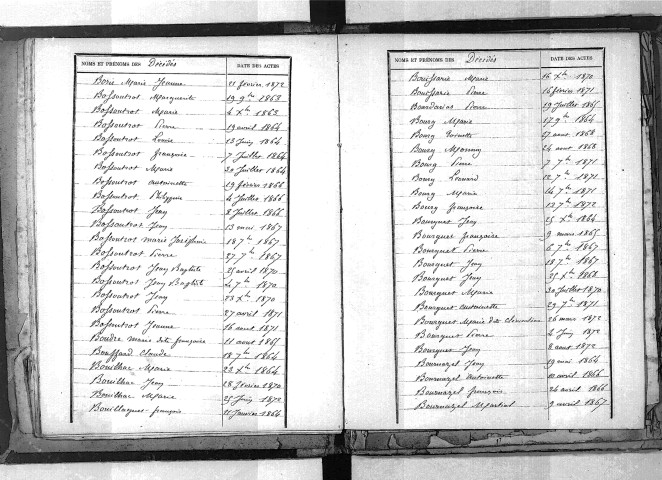 NOMS ET PRÉNOMS DES Décédés DATE DES ACTES
Borie Marie Jeanne 21 février 1872
Bossoutrot Marguerite 19 9bre 1863
Bossoutrot Marie 4 Xbre 1863
Bossoutrot Pierre 19 avril 1864
Bossoutrot Louise 13 Juin 1864
Bossoutrot françoise 7 Juillet 1864
Bossoutrot Marie 30 Juillet 1864
Bossoutrot antoinette 19 février 1866
Bossoutrot 4 Juillet 1866
Bossoutrot Jean 8 Juillet 1866
Bossoutrot Jean 13 mai 1867
Bossoutrot marie Joséphine 18 7bre 1867
Bossoutrot Pierre 27 7bre 1867
Bossoutrot Jean Baptiste 25 avril 1870
Bossoutrot Jean Baptiste 4 7bre 1870
Bossoutrot Jean 23 Xbre 1870
Bossoutrot Pierre 27 avril 1871
Bossoutrot Jeanne 16 aout 1871
Boudre marie dite françoise 11 aout 1865
Bouffard Claude 18 7bre 1864
Bouilhac Marie 22 Xbre 1864
Bouilhac Jean 28 février 1870
Bouilhac Marie 25 Juin 1872
Bouillaguet françois 11 Janvier 1864
NOMS ET PRÉNOMS DES Décédés DATE DES ACTES
Bouissarie Marie 16 Xbre 1870
Bouissarie Pierre 16 février 1871
Bourdarias Pierre 19 Juillet 1865
Bourg Marie 17 9bre 1864
Bourg Toinette 27 aout 1868
Bourg 24 aout 1868
Bourg Pierre 7 7bre 1871
Bourg Léonard 12 7bre 1871
Bourg Marie 14 7bre 1871
Bourg françoise 13 7bre 1872
Bourguet Jean 25 Xbre 1864
Bourguet françoise 9 mars 1865
Bourguet Pierre 6 7bre 1867
Bourguet Jean 18 7bre 1867
Bourguet Jean 25 Xbre 1868
Bourguet Marie 30 Juillet 1870
Bourguet antoinette 29 7bre 1871
Bourguet Marie dite Clémentine 26 mars 1872
Bourguet Pierre 4 Juin 1872
Bourguet Jean 8 aout 1872
Bournazel Jean 19 mai 1864
Bournazel Antoinette 10 avril 1866
Bournazel françoise 24 avril 1866
Bournazel Martial 9 avril 1867